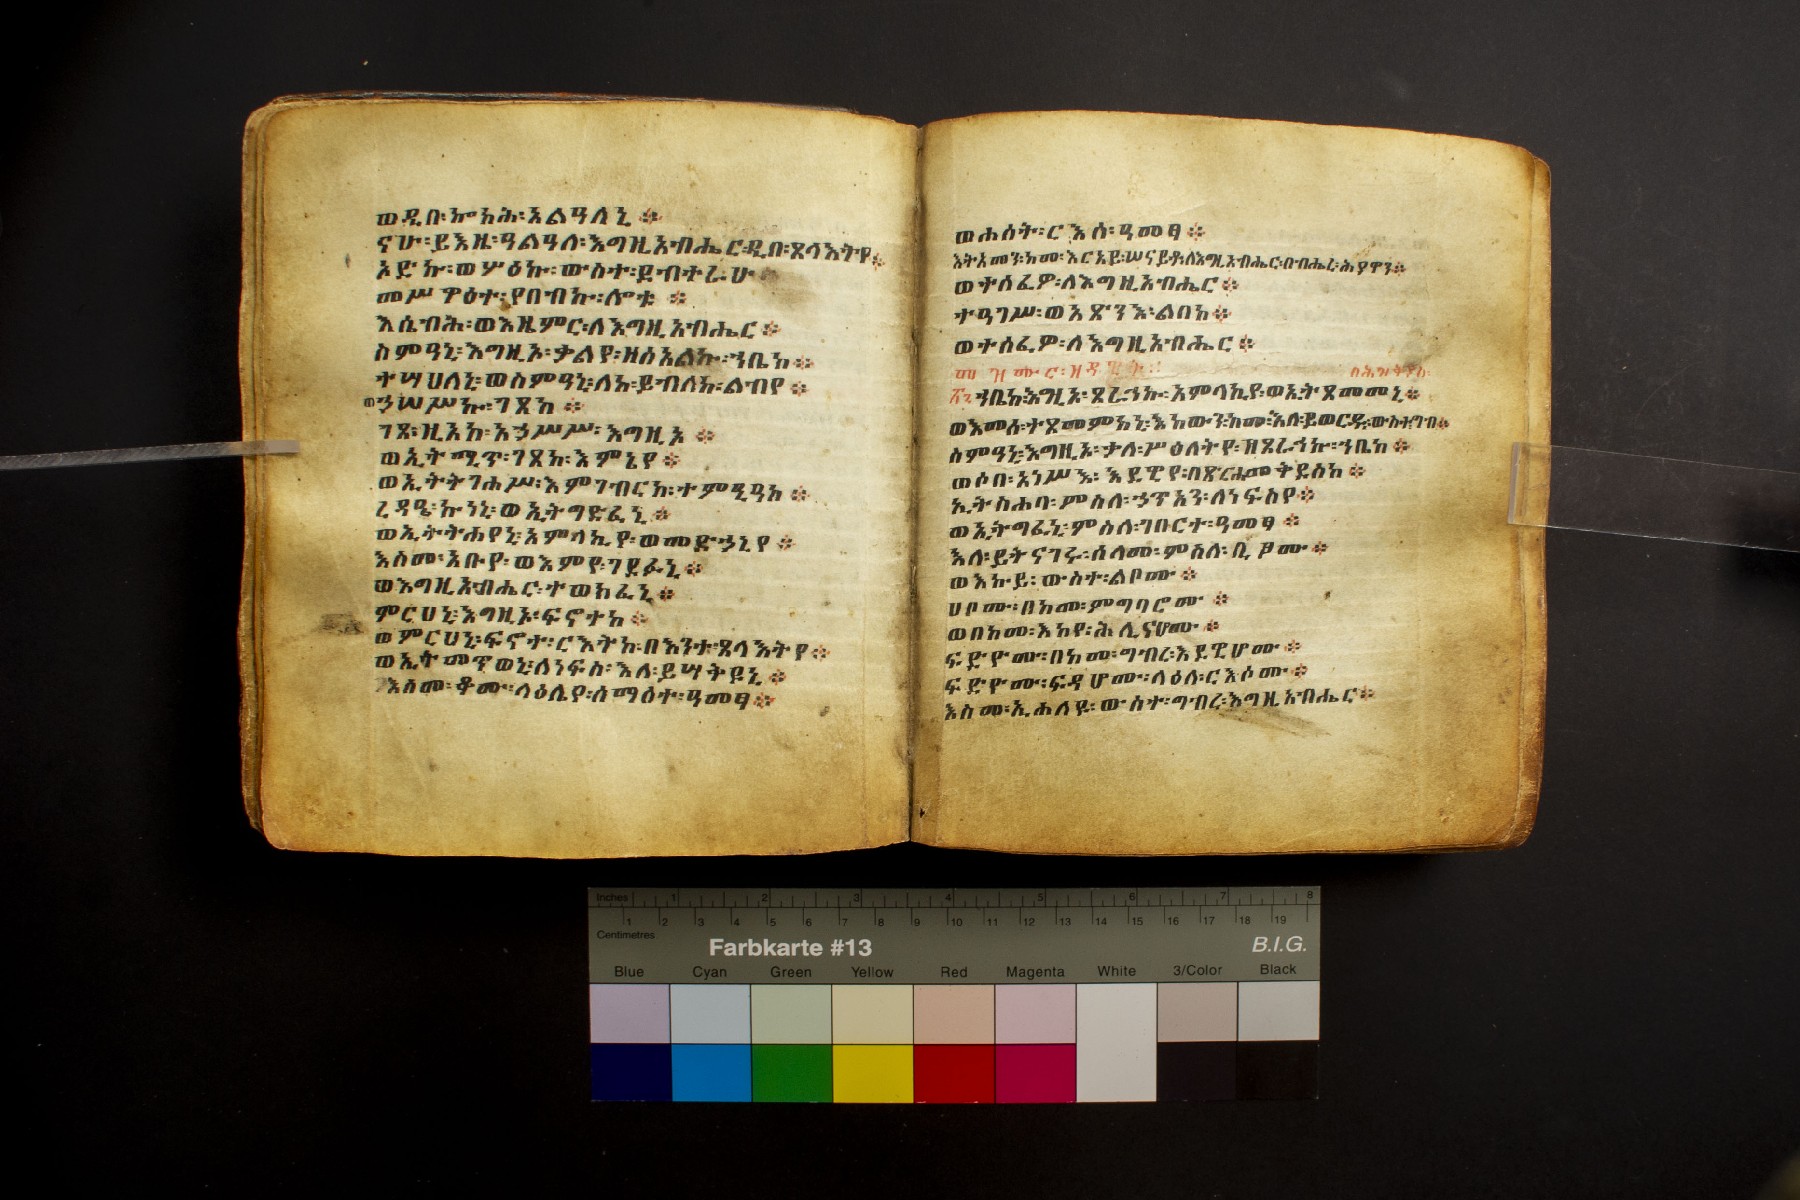 ወዲበ፡ ኰኵሕ፡ አልዓለኒ ።
ናሁ፡ ይእዜ፡ ዓልዓለ፡ እግዚአብሔር፡ ዲበ፡ ጸላእትየ ።
ኦድኩ፡ ወሦዕኩ፡ ውስተ፡ ደብተራሁ
መሥዋዕተ፡ የበብኩ፡ ሎቱ ።
እሴብሕ፡ ወእዜምር፡ ለእግዚአብሔር ።
ስምዓኒ፡ እግዚኦ፡ ቃልየ፡ ዘሰአልኩ፡ ኀቤከ ።
ተሣሀለኒ፡ ወስምዓኒ፡ ለከ፡ ይብለከ፡ ልብየ ።
ወኀሠሥኩ፡ ገጸከ ።
ገጸ፡ ዚአከ፡ አኃሥሥ፡ እግዚኦ ።
ወኢትሚጥ፡ ገጸከ፡ እምኔየ ።
ወኢትትገሐሥ፡ እምገብርከ፡ ተምዒዓከ ።
ረዳዔ፡ ኩነኒ፡ ወኢትግድፈኒ ።
ወኢትትሐየኒ፡ አምላኪየ፡ ወመድኃኒየ ።
እስመ፡ አቡየ፡ ወእምየ፡ ገደፉኒ ።
ወእግዚአብሔር፡ ተወክፈኒ ።
ምርሀኒ፡ እግዚኦ፡ ፍኖተከ ።
ወምርሀኒ፡ ፍኖተ፡ ርትእከ፡ በእንተ፡ ጸላእትየ ።
ወኢትመጥወኒ፡ ለነፍስ፡ እለ፡ ይሣቅዩኒ ።
እስመ፡ ቆሙ፡ ላዕሌየ፡ ሰማዕተ፡ ዓመፃ ።
ወሐሰት፡ ርእሰ፡ ዓመፃ ።
እትአመን፡ ከመ፡ እርአይ፡ ሠናይቶ፡ ለእግዚአብሔር፡ በብሔረ፡ ሕያዋን ።
ወተሰፈዎ፡ ለእግዚአብሔር ።
ተዓገሥ፡ ወአጽንእ፡ ልበከ ።
ወተሰፈዎ፡ ለእግዚአብሔር ።
መዝሙር፡ ዘዳዊት ።
፳፯ ኀቤከ፡ እግዚኦ፡ ጸራኅኩ፡ አምላኪየ፡ ወኢትጸመመኒ ።
ወእመሰ፡ ተጸመምከኒ፡ እከውን፡ ከመ፡ እለ፡ ይወርዱ፡ ውስተ፡ ግብ ።
ስምዓኒ፡ እግዚኦ፡ ቃለ፡ ሥዕለትየ፡ ዘጸራኅኩ፡ ኀቤከ ።
ወሶበ፡ አነሥእ፡ እደዊየ፡ በጽርሐ፡ መቅደስከ ።
ኢትስሐባ፡ ምስለ፡ ኃጥአን፡ ለነፍስየ ።
ወኢትግፈኒ፡ ምስለ፡ ገበርተ፡ ዓመፃ ።
እለ፡ ይትናገሩ፡ ሰላመ፡ ምስለ፡ ቢጾሙ ።
ወእኩይ፡ ውስተ፡ ልቦሙ ።
ሀቦሙ፡ በከመ፡ ምግባሮሙ ።
ወበከመ፡ እከየ፡ ሕሊናሆሙ ።
ፍድዮሙ፡ በከመ፡ ግብረ፡ እደዊሆሙ ።
ፍድዮሙ፡ ፍዳሆሙ፡ ላዕለ፡ ርእሶሙ ።
እስመ፡ ኢሐለዩ፡ ውስተ፡ ግብረ፡ እግዚአብሔር ።
Inches 1 2 3 4 5 6 7 8
1 2 3 4 5 6 7 8 9 10 11 12 13 14 15 16 17 18 19
Centimetres
Farbkarte #13 B.I.G.
Blue Cyan Green Yellow Red Magenta White 3/Color Black